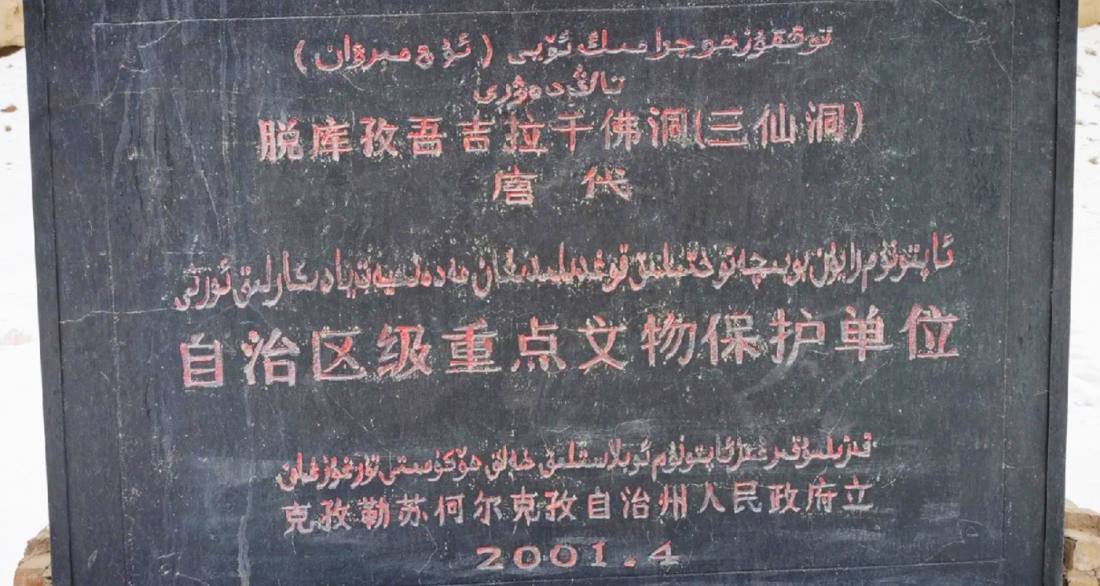 توققۇزھوجرا مىڭ ئۆيى ( ئۈچ مىرۋان )
تاڭ دەۋرى
脱库孜吾吉拉千佛洞(三仙洞)
唐 代
ئاپتونوم رايون بويىچە نۇختىلىق قوغدىلىدىغان مەدەنىيەت يادىكارلىق ئورنى
自治区级重点文物保护单位
قىزىلسۇ قىرغىز ئاپتونوم ئوبلاستلىق خەلق ھۆكۈمىتى تۇرغۇزغان
克孜勒苏何尔克孜自治州人民政府立
2001.4